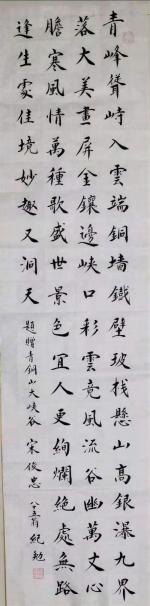 青峰聳峙入雲端銅墙鐵壁玻栈懸山高銀瀑九界
落大美畫屏金鑲邊峽口彩雲竞風流谷幽萬丈心
膽寒風情萬種歌盛世景色宜人更絢爛絕處無路
逢生處佳境妙趣又洞天
題贈青銅山大峽谷 宋俊忠
八十五翁 純勉